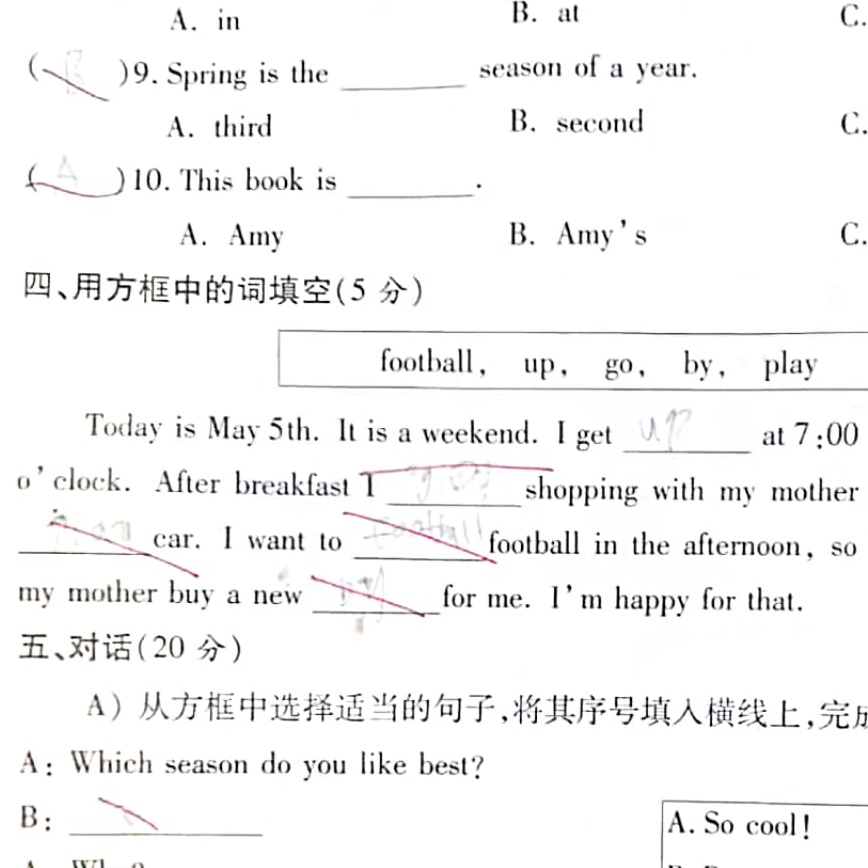 A. in B. at C.
( )9. Spring is the ______ season of a year.
A. third B. second C.
( A )10. This book is ______.
A. Amy B. Amy's C.
四、用方框中的词填空(5 分)
football, up, go, by, play
Today is May 5th. It is a weekend. I get up at 7:00
o'clock. After breakfast I ______ shopping with my mother
______ car. I want to football football in the afternoon, so
my mother buy a new ______ for me. I'm happy for that.
五、对话(20 分)
A) 从方框中选择适当的句子,将其序号填入横线上,完成
A: Which season do you like best?
B: ______
A. So cool!